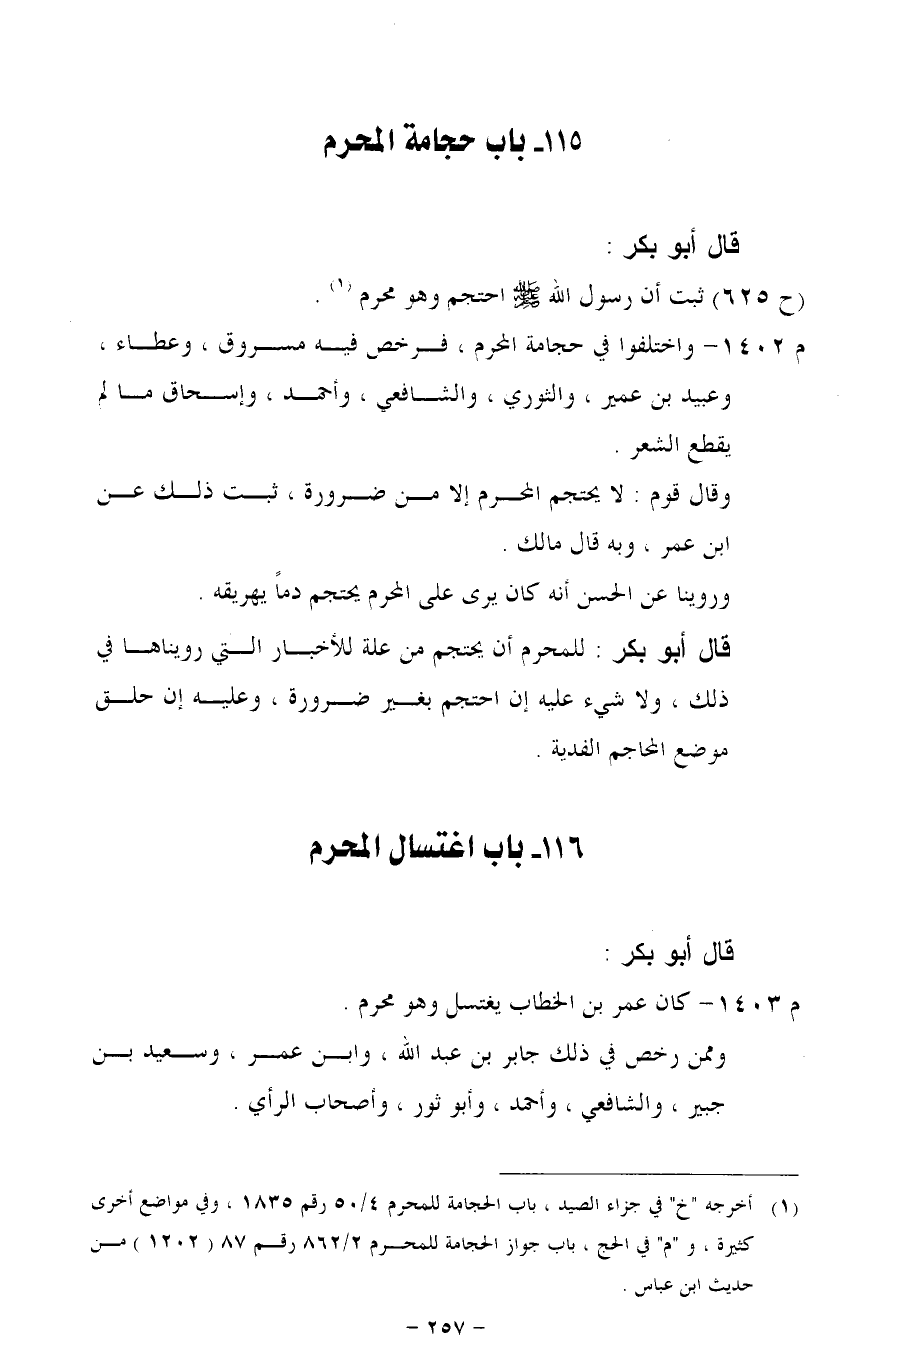 ١١٥ـ باب حجامة المحرم
قال أبو بكر :
(ح ٦٢٥) ثبت أن رسول الله ﷺ احتجم وهو محرم (١) .
م ١٤٠٢ – واختلفوا في حجامة المحرم ، فـرخص فيـه مسـروق ، وعطـاء ،
وعبيد بن عمير ، والثوري ، والشـافعي ، وأحمـد ، وإسـحاق مـا لم
يقطع الشعر .
وقال قوم : لا يحتجم المحـرم إلا مـن ضـرورة ، ثبـت ذلـك عـن
ابن عمر ، وبه قال مالك .
وروينا عن الحسن أنه كان يرى على المحرم يحتجم دماً يهريقه .
قال أبو بكر : للمحرم أن يحتجم من علة للأخبـار الـتي رويناهـا في
ذلك ، ولا شيء عليه إن احتجم بغـير ضـرورة ، وعليـه إن حلـق
موضع المحاجم الفدية .
١١٦ـ باب اغتسال المحرم
قال أبو بكر :
م ١٤٠٣ – كان عمر بن الخطاب يغتسل وهو محرم .
وممن رخص في ذلك جابر بن عبد الله ، وابـن عمـر ، وسـعيد بـن
جبير ، والشافعي ، وأحمد ، وأبو ثور ، وأصحاب الرأي .
(١) أخرجه "خ" في جزاء الصيد ، باب الحجامة للمحرم ٥٠/٤ رقم ١٨٣٥ ، وفي مواضع أخرى
كثيرة ، و "م" في الحج ، باب جواز الحجامة للمحـرم ٨٦٢/٢ رقـم ٨٧ ( ١٢٠٢ ) مـن
حديث ابن عباس .
– ٢٥٧ –